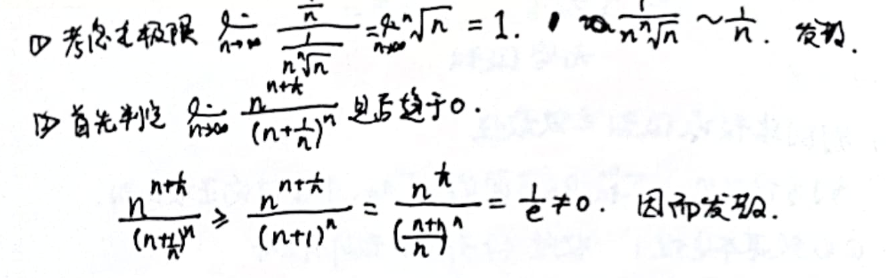 ① 考虑极限 lim_{n→∞} \frac{\frac{1}{n}}{\frac{1}{n\sqrt[n]{n}}} = lim_{n→∞} \sqrt[n]{n} = 1. \frac{1}{n\sqrt[n]{n}} ~ \frac{1}{n}. 发散.
首先判定 lim_{n→∞} \frac{n^{n+\frac{1}{n}}}{(n+\frac{1}{n})^n} 是否趋于0.
\frac{n^{n+\frac{1}{n}}}{(n+\frac{1}{n})^n} ≥ \frac{n^{n+\frac{1}{n}}}{(n+1)^n} = \frac{n^{\frac{1}{n}}}{(\frac{n+1}{n})^n} = \frac{1}{e} ≠ 0. 因而发散.